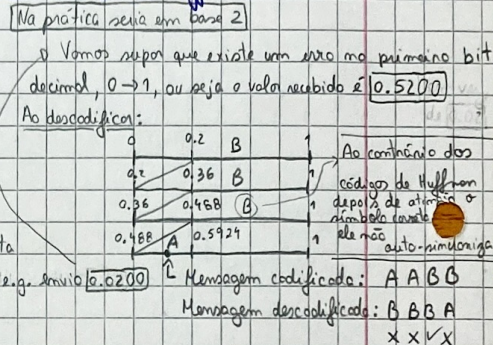 Na prática seria em base 2
Vamos supor que existe um erro no primeiro bit
decimal, 0→1, ou seja o valor recebido é 0.5200
Ao descodificar:
0 0.2 B 1
0.2 0.36 B 1
0.36 0.488 B 1
0.488 A 0.5924 1
Ao contrário dos
códigos de Huffman
depois de atingido o
símbolo
ele não
auto-sincroniza
ta
e.g. envio 0.0200
Mensagem codificada: A A B B
Mensagem descodificada: B B B A
X X ✓ X